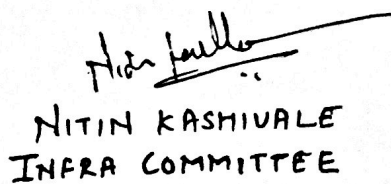 NITIN KASHIVALE
INFRA COMMITTEE